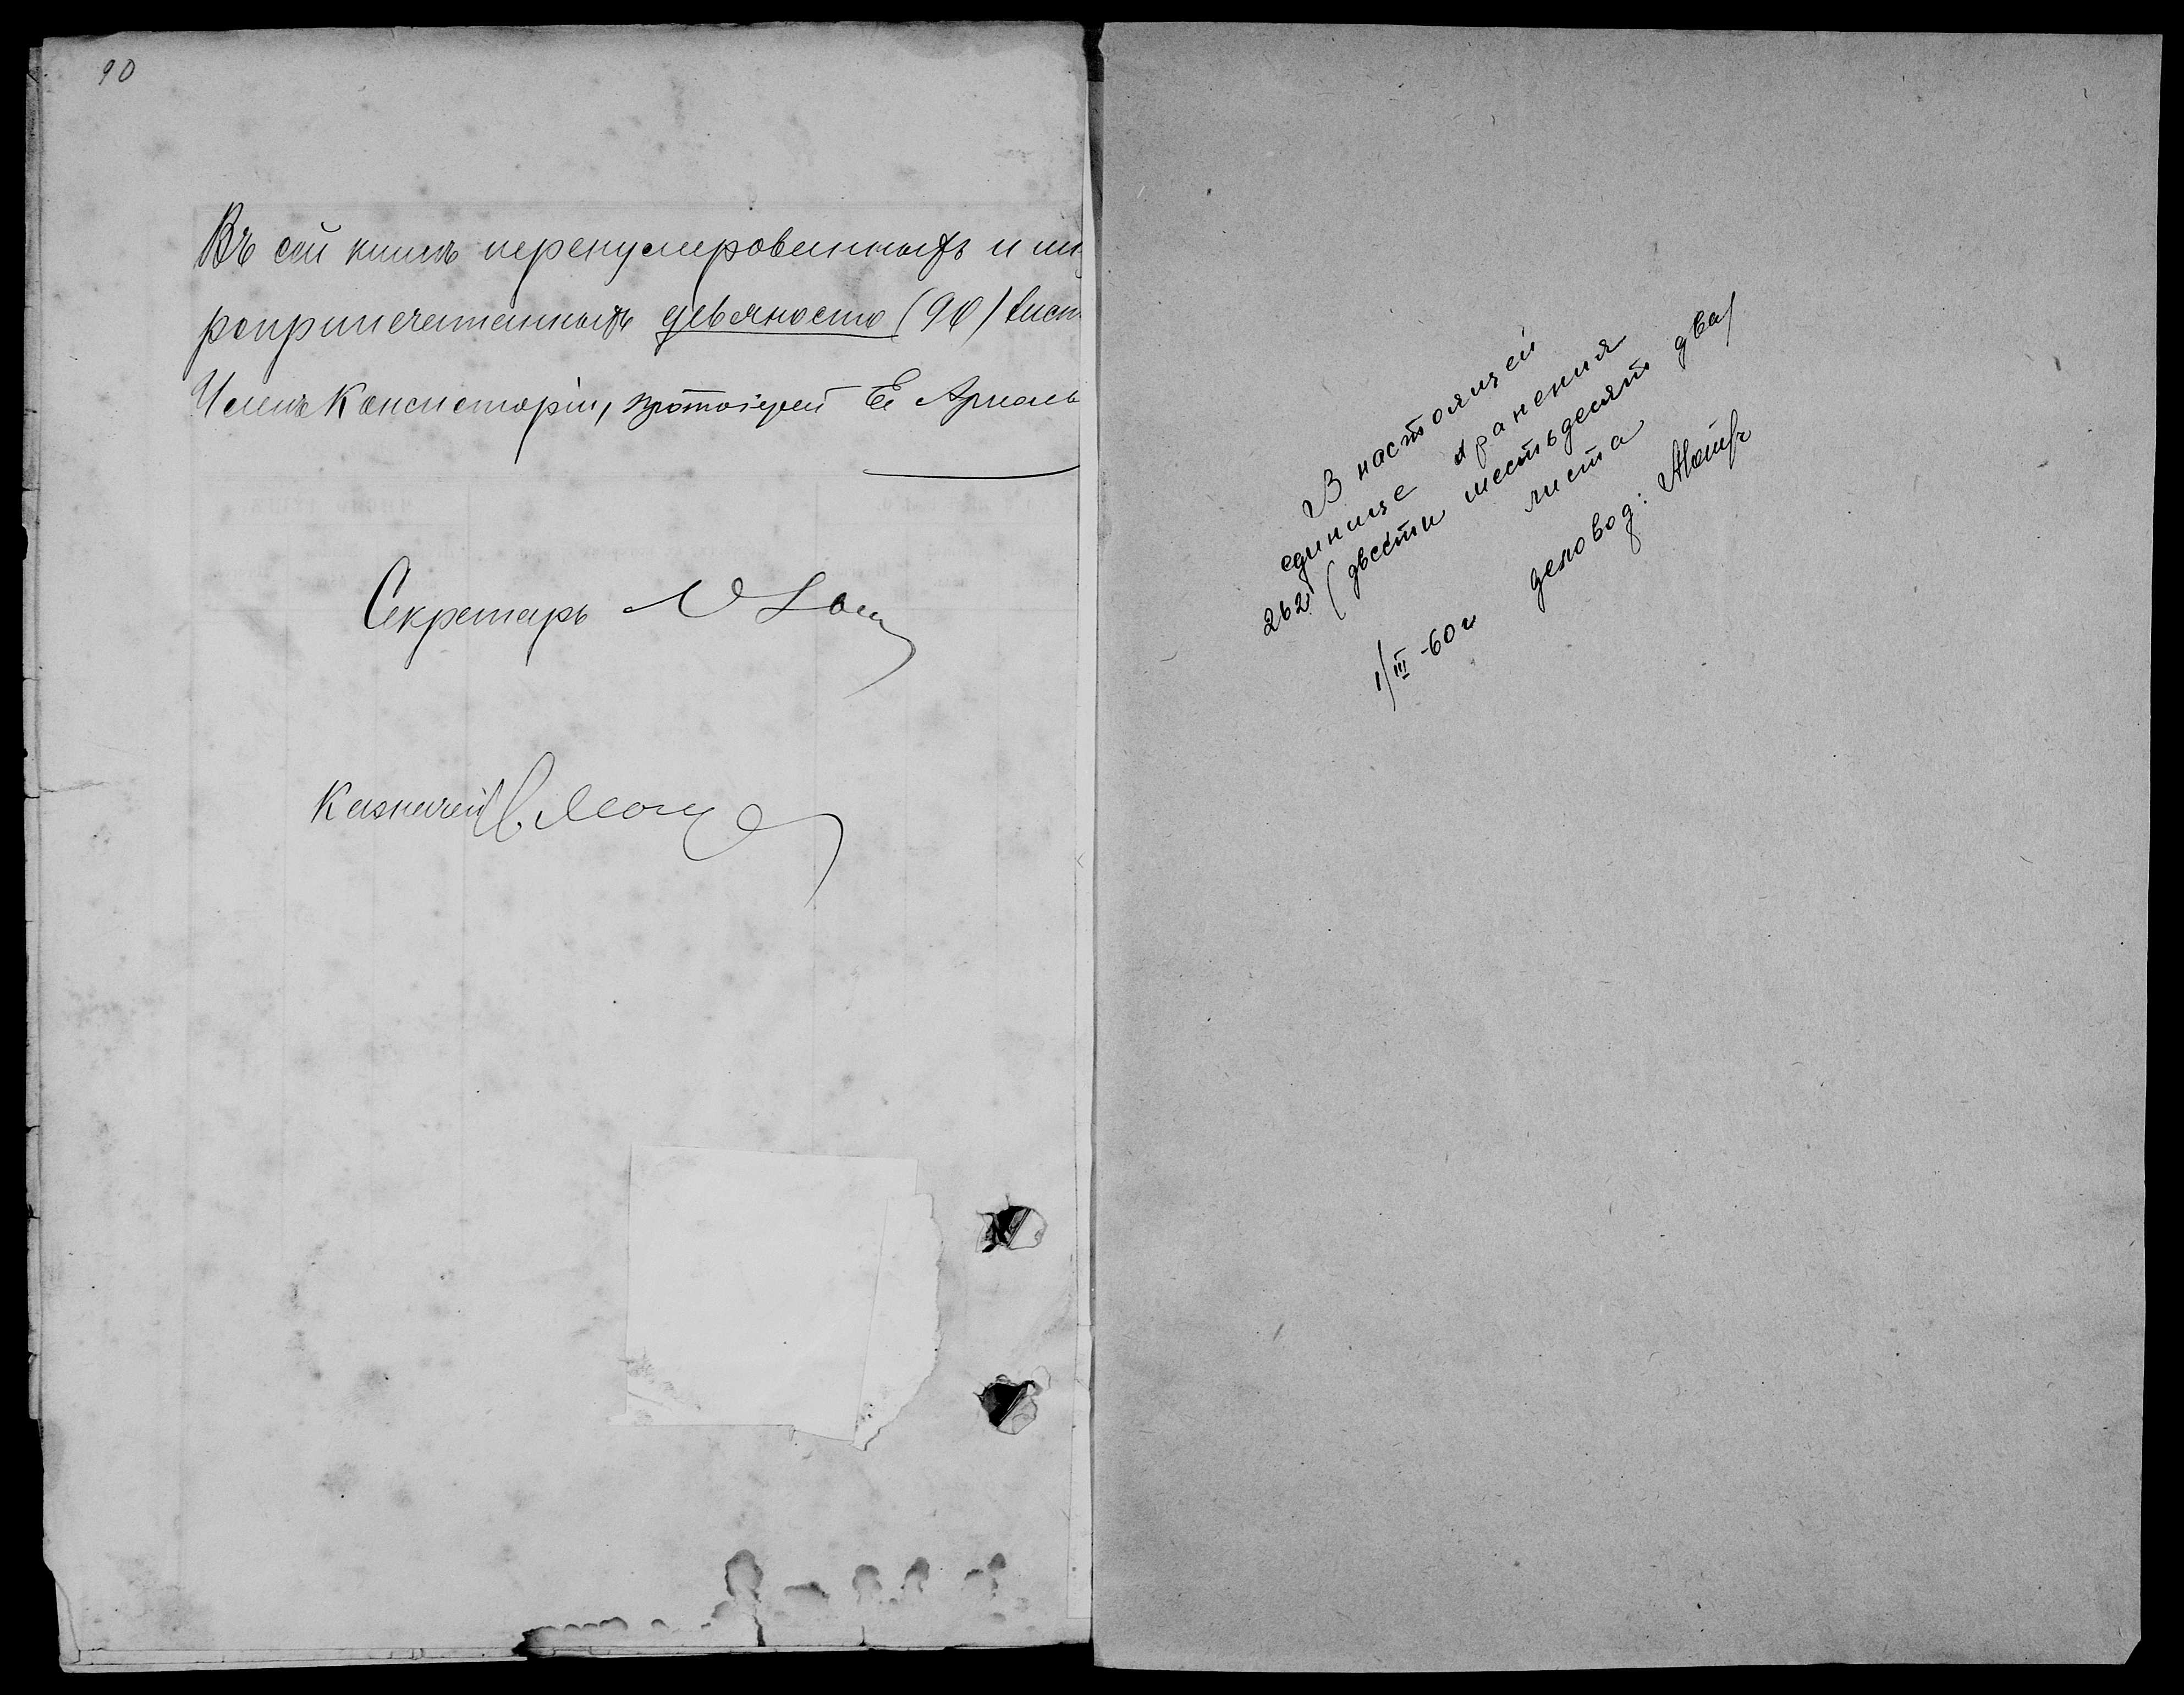 90
Въ сей книгѣ перенумерованныхъ и шну
роприпечатанныхъ девяносто (90) лист
Членъ Консисторіи, протоіерей Е.
Секретарь
Казначей
В настоящей
единице хранения
262 (двести шестьдесят два)
листа
1/III-60 г деловод: